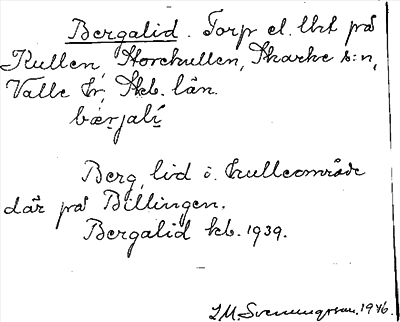 Bergalid. Torp el. lht på
Kullen, Storekullen, Skarke s:n,
Valle hr, Skb. län.
bærjalí
Berg, lid i kulleområde
där på Billingen.
Bergalid kb. 1939.
I.M. Svenungsson. 1946.